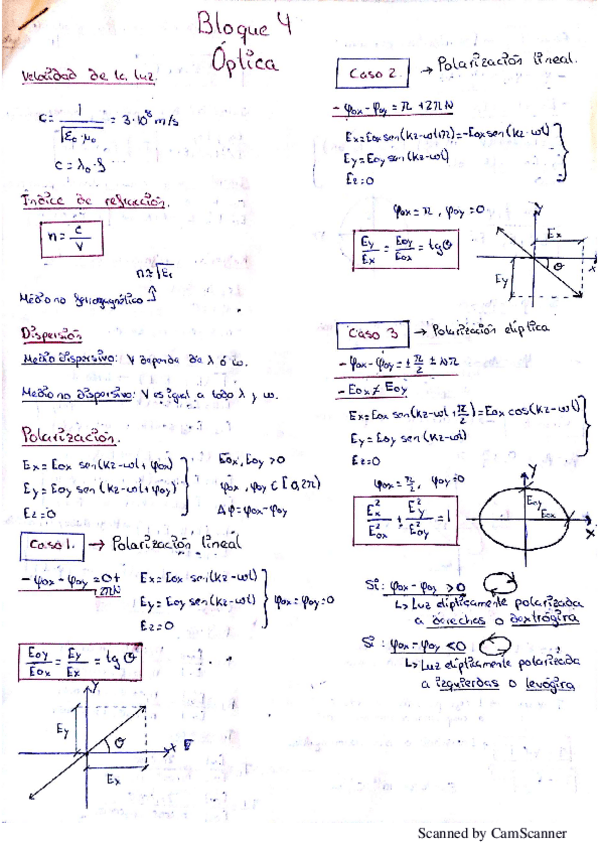 Bloque 4
Óptica
Velocidad de la luz.
c = 1/√(ε₀·μ₀) = 3·10⁸ m/s
c = λ₀·f
Índice de refracción.
n = c/v
n ≈ √εr
Medio no ferromagnético
Dispersión
Medio dispersivo: V depende de λ ó ω.
Medio no dispersivo: V es igual a todo λ y ω.
Polarización.
Ex = Eox sen(kz-ωt+φox)
Ey = Eoy sen(kz-ωt+φoy)
Ez=0
Eox, Eoy > 0
φox, φoy ∈ [0, 2π)
Δφ = φox-φoy
Caso 1. → Polarización lineal
- φox - φoy = 0 + 2πN
Ex = Eox sen(kz-ωt)
Ey = Eoy sen(kz-ωt)
Ez=0
φox = φoy = 0
Eoy/Eox = Ey/Ex = tg θ
y
Ey
θ
x
Ex
Caso 2. → Polarización lineal.
- φox - φoy = π + 2πN
Ex = Eox sen(kz-ωt+π) = -Eox sen(kz-ωt)
Ey = Eoy sen(kz-ωt)
Ez=0
φox = π, φoy = 0
Ey/Ex = Eoy/Eox = tg θ
y
Ex
θ
x
Ey
Caso 3 → Polarización elíptica
- φox - φoy = ± π/2 ± Nπ
- Eox ≠ Eoy
Ex = Eox sen(kz-ωt+π/2) = Eox cos(kz-ωt)
Ey = Eoy sen(kz-ωt)
Ez=0
φox = π/2, φoy = 0
Ex²/Eox² + Ey²/Eoy² = 1
y
Eoy
Eox
x
Si: φox - φoy > 0
↳ Luz elípticamente polarizada
a derechas o dextrógira
Si: φox - φoy < 0
↳ Luz elípticamente polarizada
a izquierdas o levógira
Scanned by CamScanner